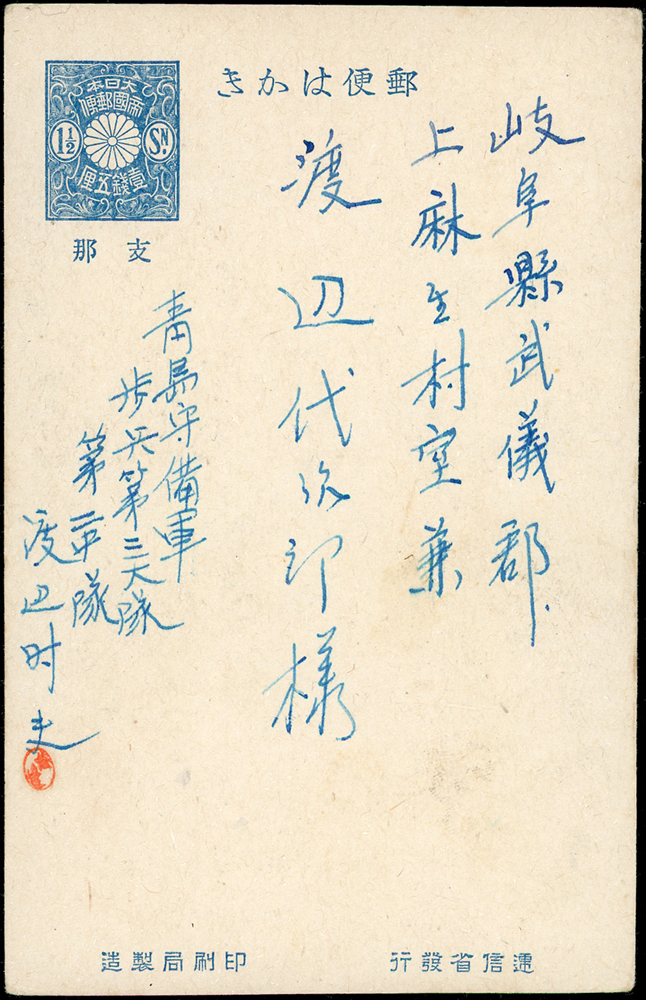 郵便はかき
大日本
帝國郵便
1½ Sn.
壹錢五厘
支那
岐阜縣武儀郡
上麻生村室兼
渡辺代次郎様
青島守備軍
歩兵第三大隊
第二中隊
渡辺时夫
遞信省發行
印刷局製造